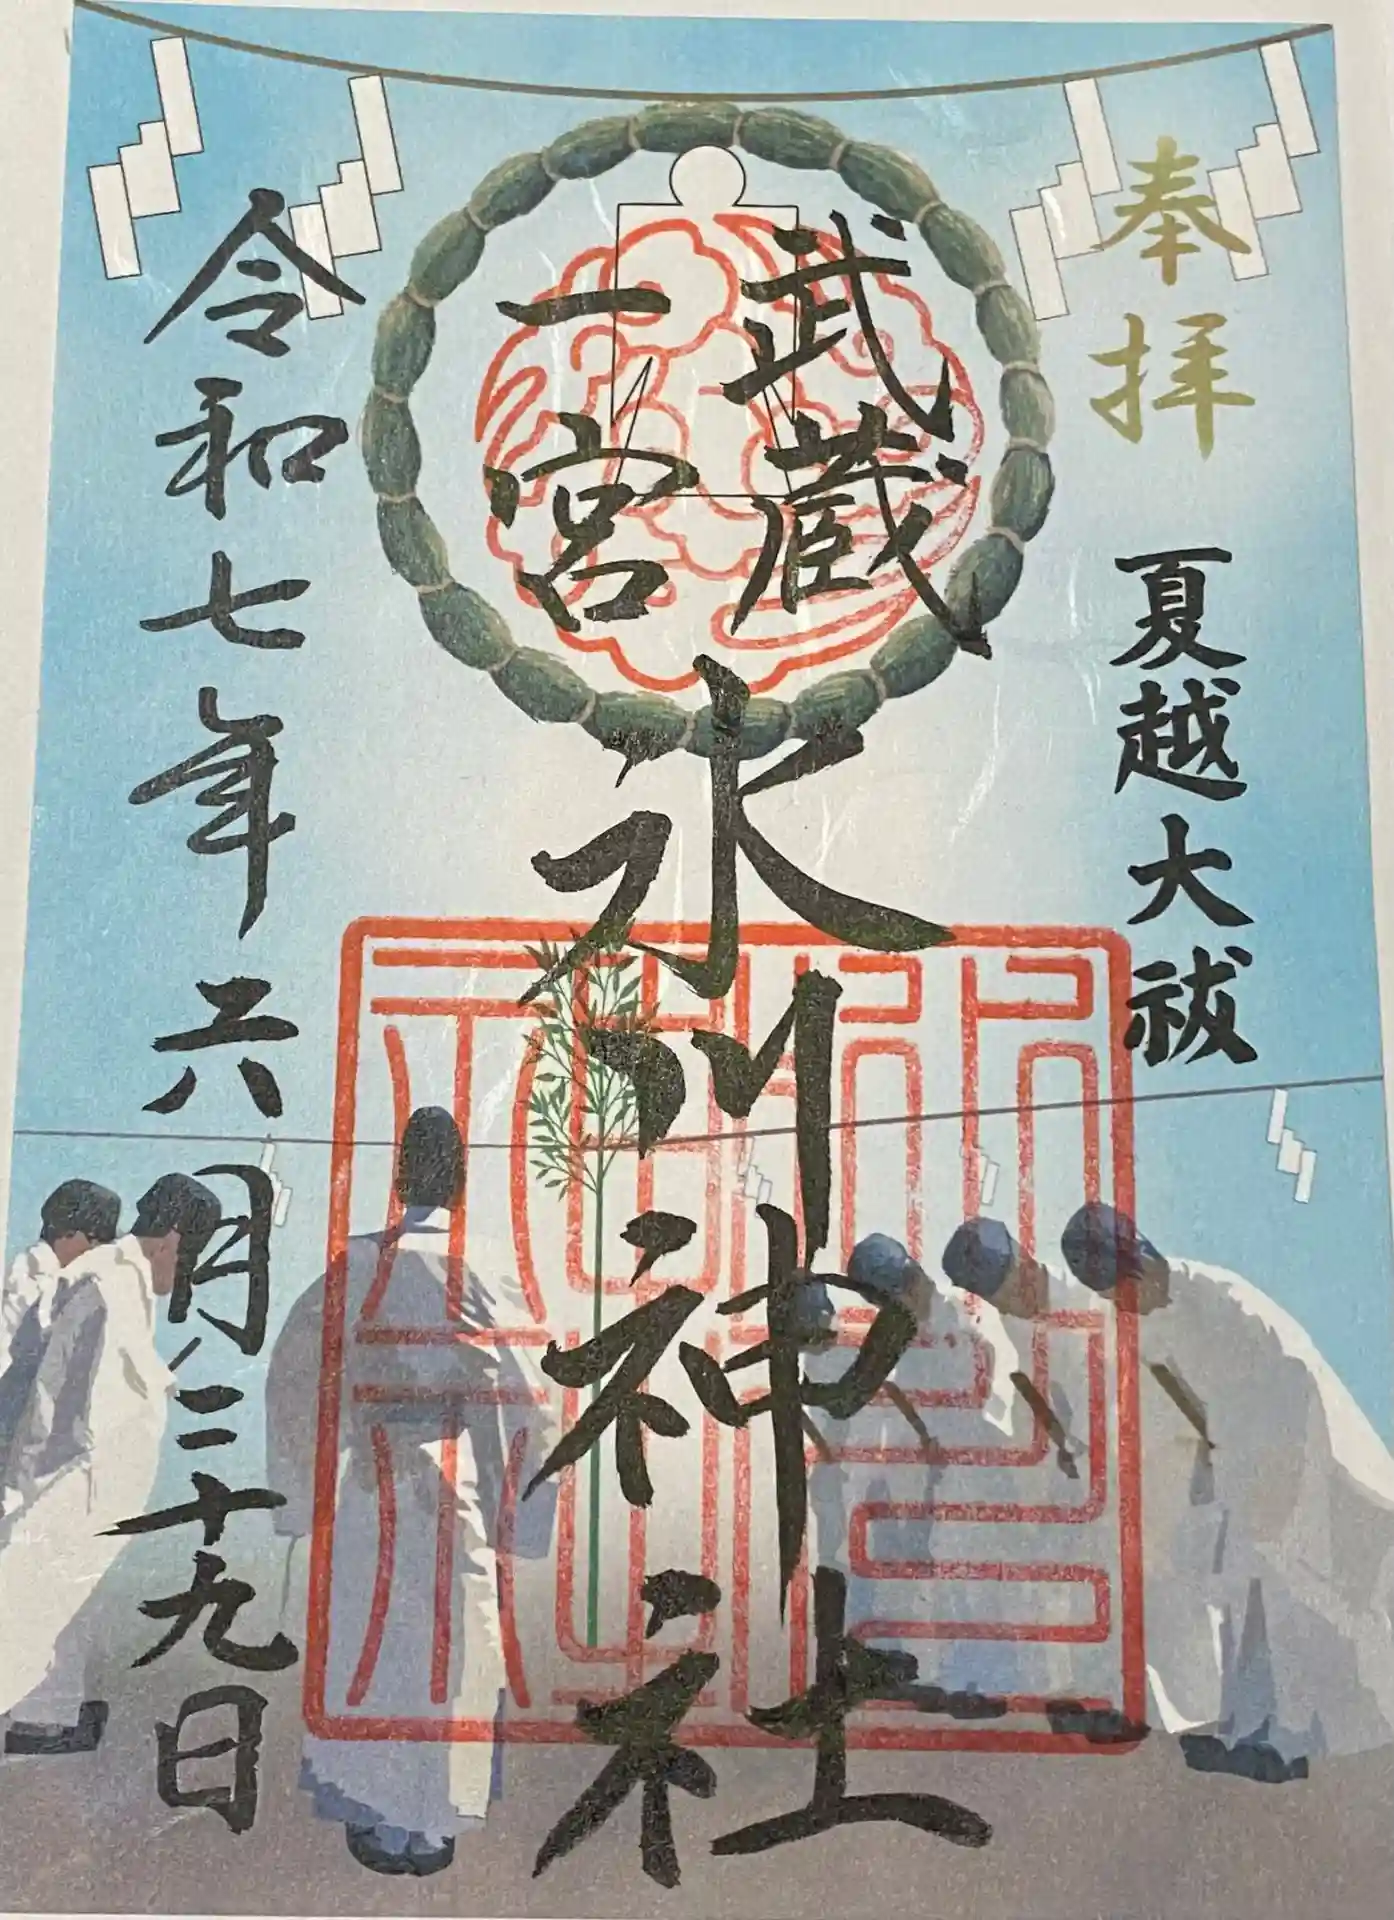 奉拝
夏越大祓
武蔵
一宮
氷川神社
令和七年六月二十九日